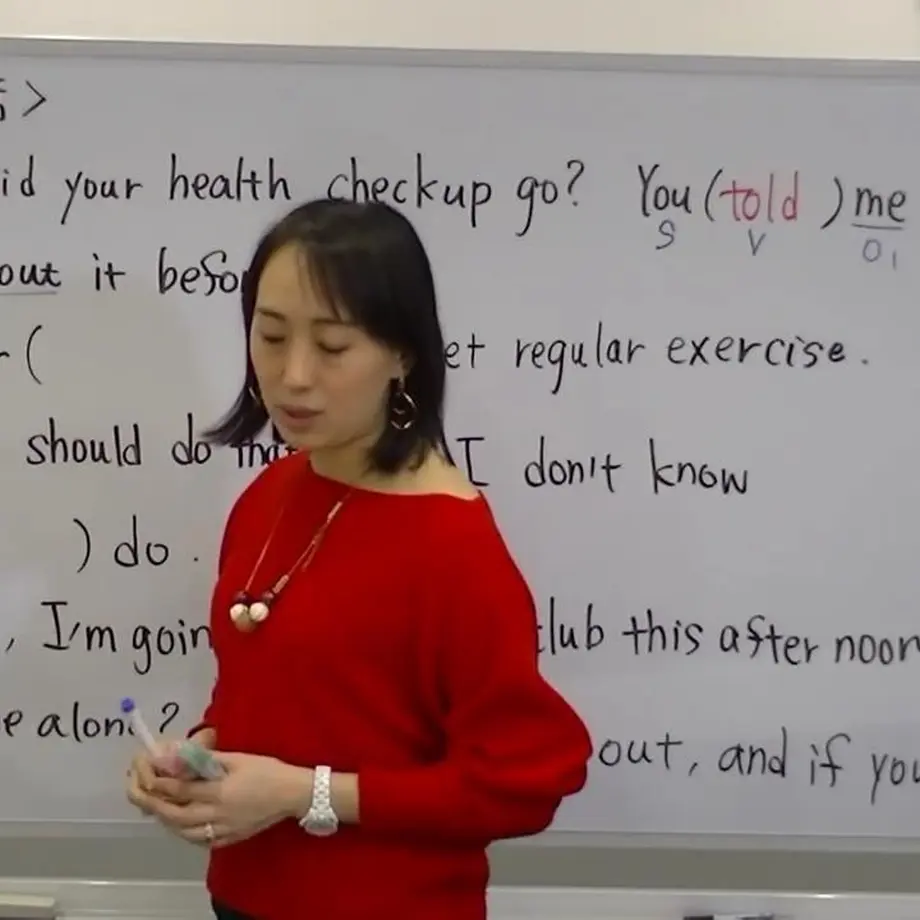 >
id your health checkup go? You (told) me
S V O1
out it befo
( et regular exercise.
should do that I don't know
) do.
, I'm goin club this afternoon
e alon ?
out, and if you